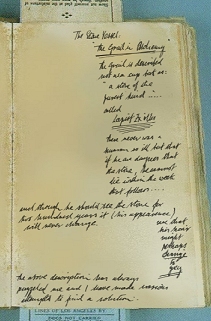 The Stone Vessel.
"The Grail in Alchemy"
The Grail is described
not as a cup but as:
"a stone of the
purest kind .....
called
Lapsit Exillis
there never was a
human so ill but that
if he one day sees that
the stone, he cannot
die within the week
that follows....
and though he should see the stone for
two hundred years it (his appearance)
will never change.
save that
his hair
might
perhaps
change
to
grey
The above description has always
puzzled me and I have made various
attempts to find a solution.
LINES OF LOS ANGELES BY
DOES NOT CARRIED